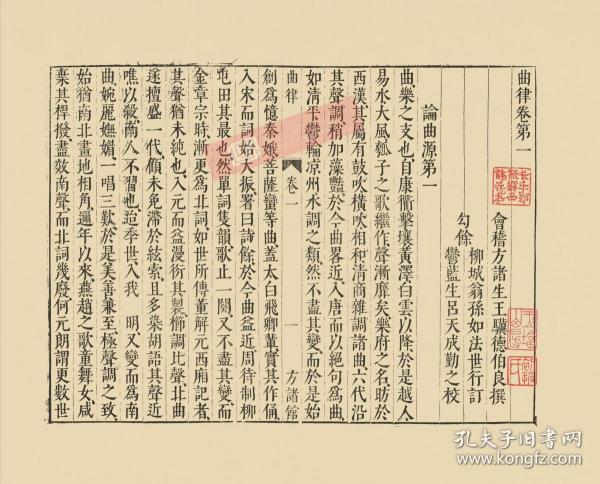 曲律卷第一
會稽方諸生王驥德伯良撰
柳城翁孫如法世行訂
勾餘
鬱藍生呂天成勤之校
論曲源第一
曲樂之支也自康衢擊壤黃澤白雲以降於是越人
易水大風瓠子之歌繼作聲漸靡矣樂府之名昉於
西漢其屬有鼓吹橫吹相和清商雜調諸曲六代沿
其聲調稍加藻豔於今曲略近入唐而以絕句爲曲
如清平鬱輪凉州水調之類然不盡其變而於是始
曲律
卷一
一
方諸館
創爲憶秦娥菩薩蠻等曲蓋太白飛卿輩實其作俑
入宋而詞始大振署曰詩餘於今曲益近周待制柳
屯田其最也然單詞隻韻歌止一闋又不盡其變而
金章宗時漸更爲北詞如世所傳董解元西廂記者
其聲猶未純也入元而益漫衍其製櫛調比聲北曲
遂擅盛一代顧未免滯於絃索且多染胡語其聲近
噍以殺南人不習也迨季世入我 明又變而爲南
曲婉麗嫵媚一唱三歎於是美善兼至極聲調之致
始猶南北畫地相角邇年以來燕趙之歌童舞女咸
棄其捍撥盡效南聲而北詞幾廢何元朗謂更數世
孔夫子旧书网
www.kongfz.com